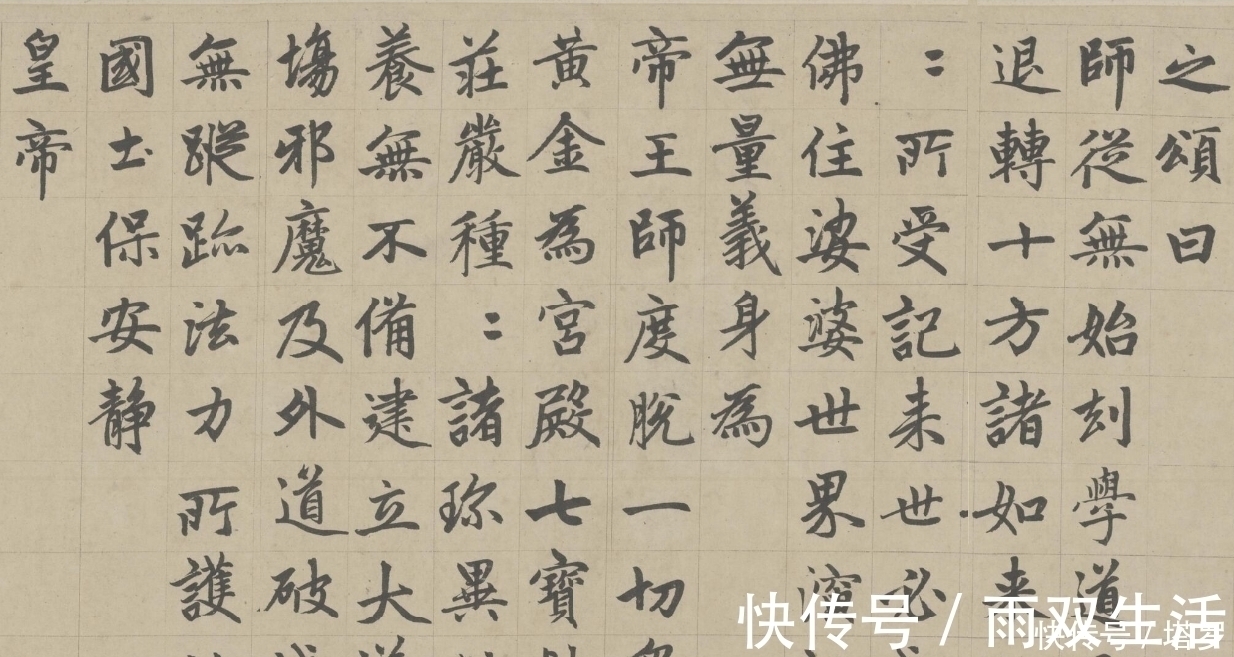 之頌曰
師從無始刼學道
退轉十方諸如来
〻所受記来世必
佛住娑婆世界演
無量義身為
帝王師度脫一切
黃金為宮殿七寶
荘嚴種〻諸珎異
養無不備建立大
塲邪魔及外道破
無蹤跡法力所護
國土保安静
皇帝
快传号 / 雨双生活
快传号